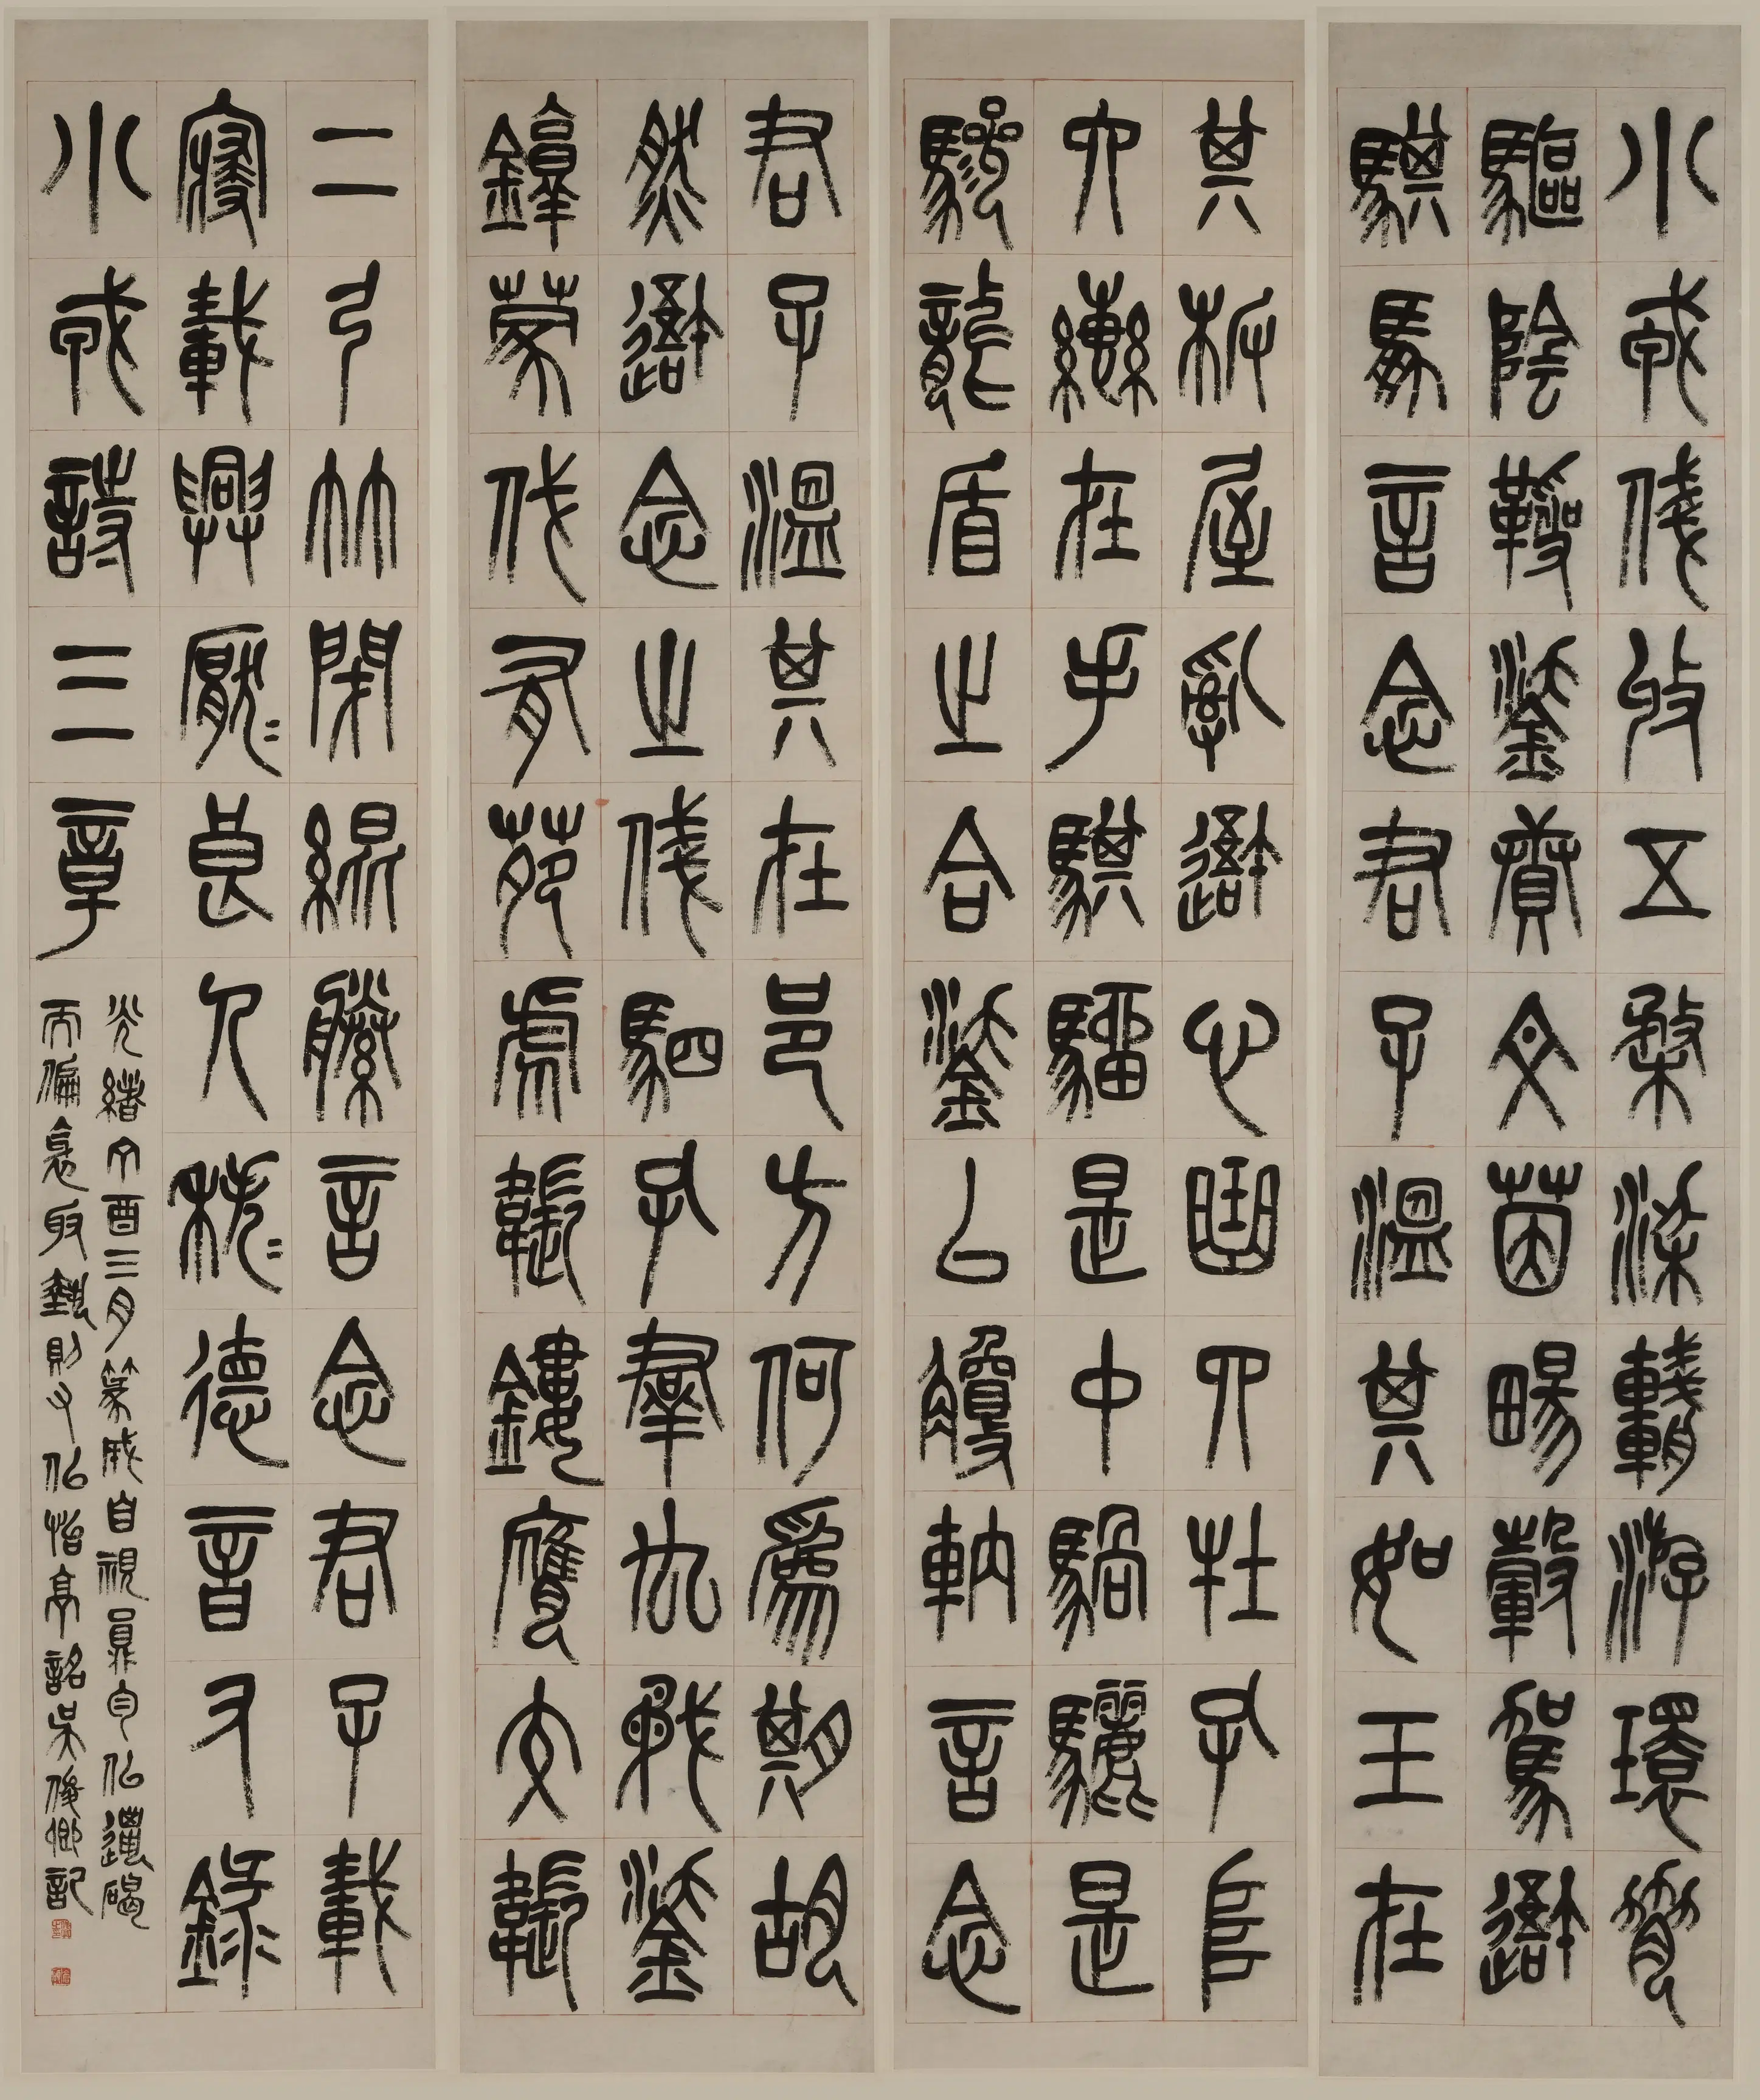 小戎俴收五楘梁輈游環脅
驅陰靷鋈續文茵暢轂駕我
騏馵言念君子溫其如玉在
其板屋亂我心曲四牡孔阜
六轡在手騏駵是中騧驪是
驂龍盾之合鋈以觼軜言念
君子溫其在邑方何爲期胡
然我念之俴駟孔羣厹矛鋈
錞蒙伐有苑虎韔鏤膺交韔
二弓竹閉緄縢言念君子載
寢載興厭〻良人秩〻德音又錄
小戎詩三章
光緒丁酉三月篆成自視似邋碣
而偏意取勢則又似怡亭銘吳俊卿記